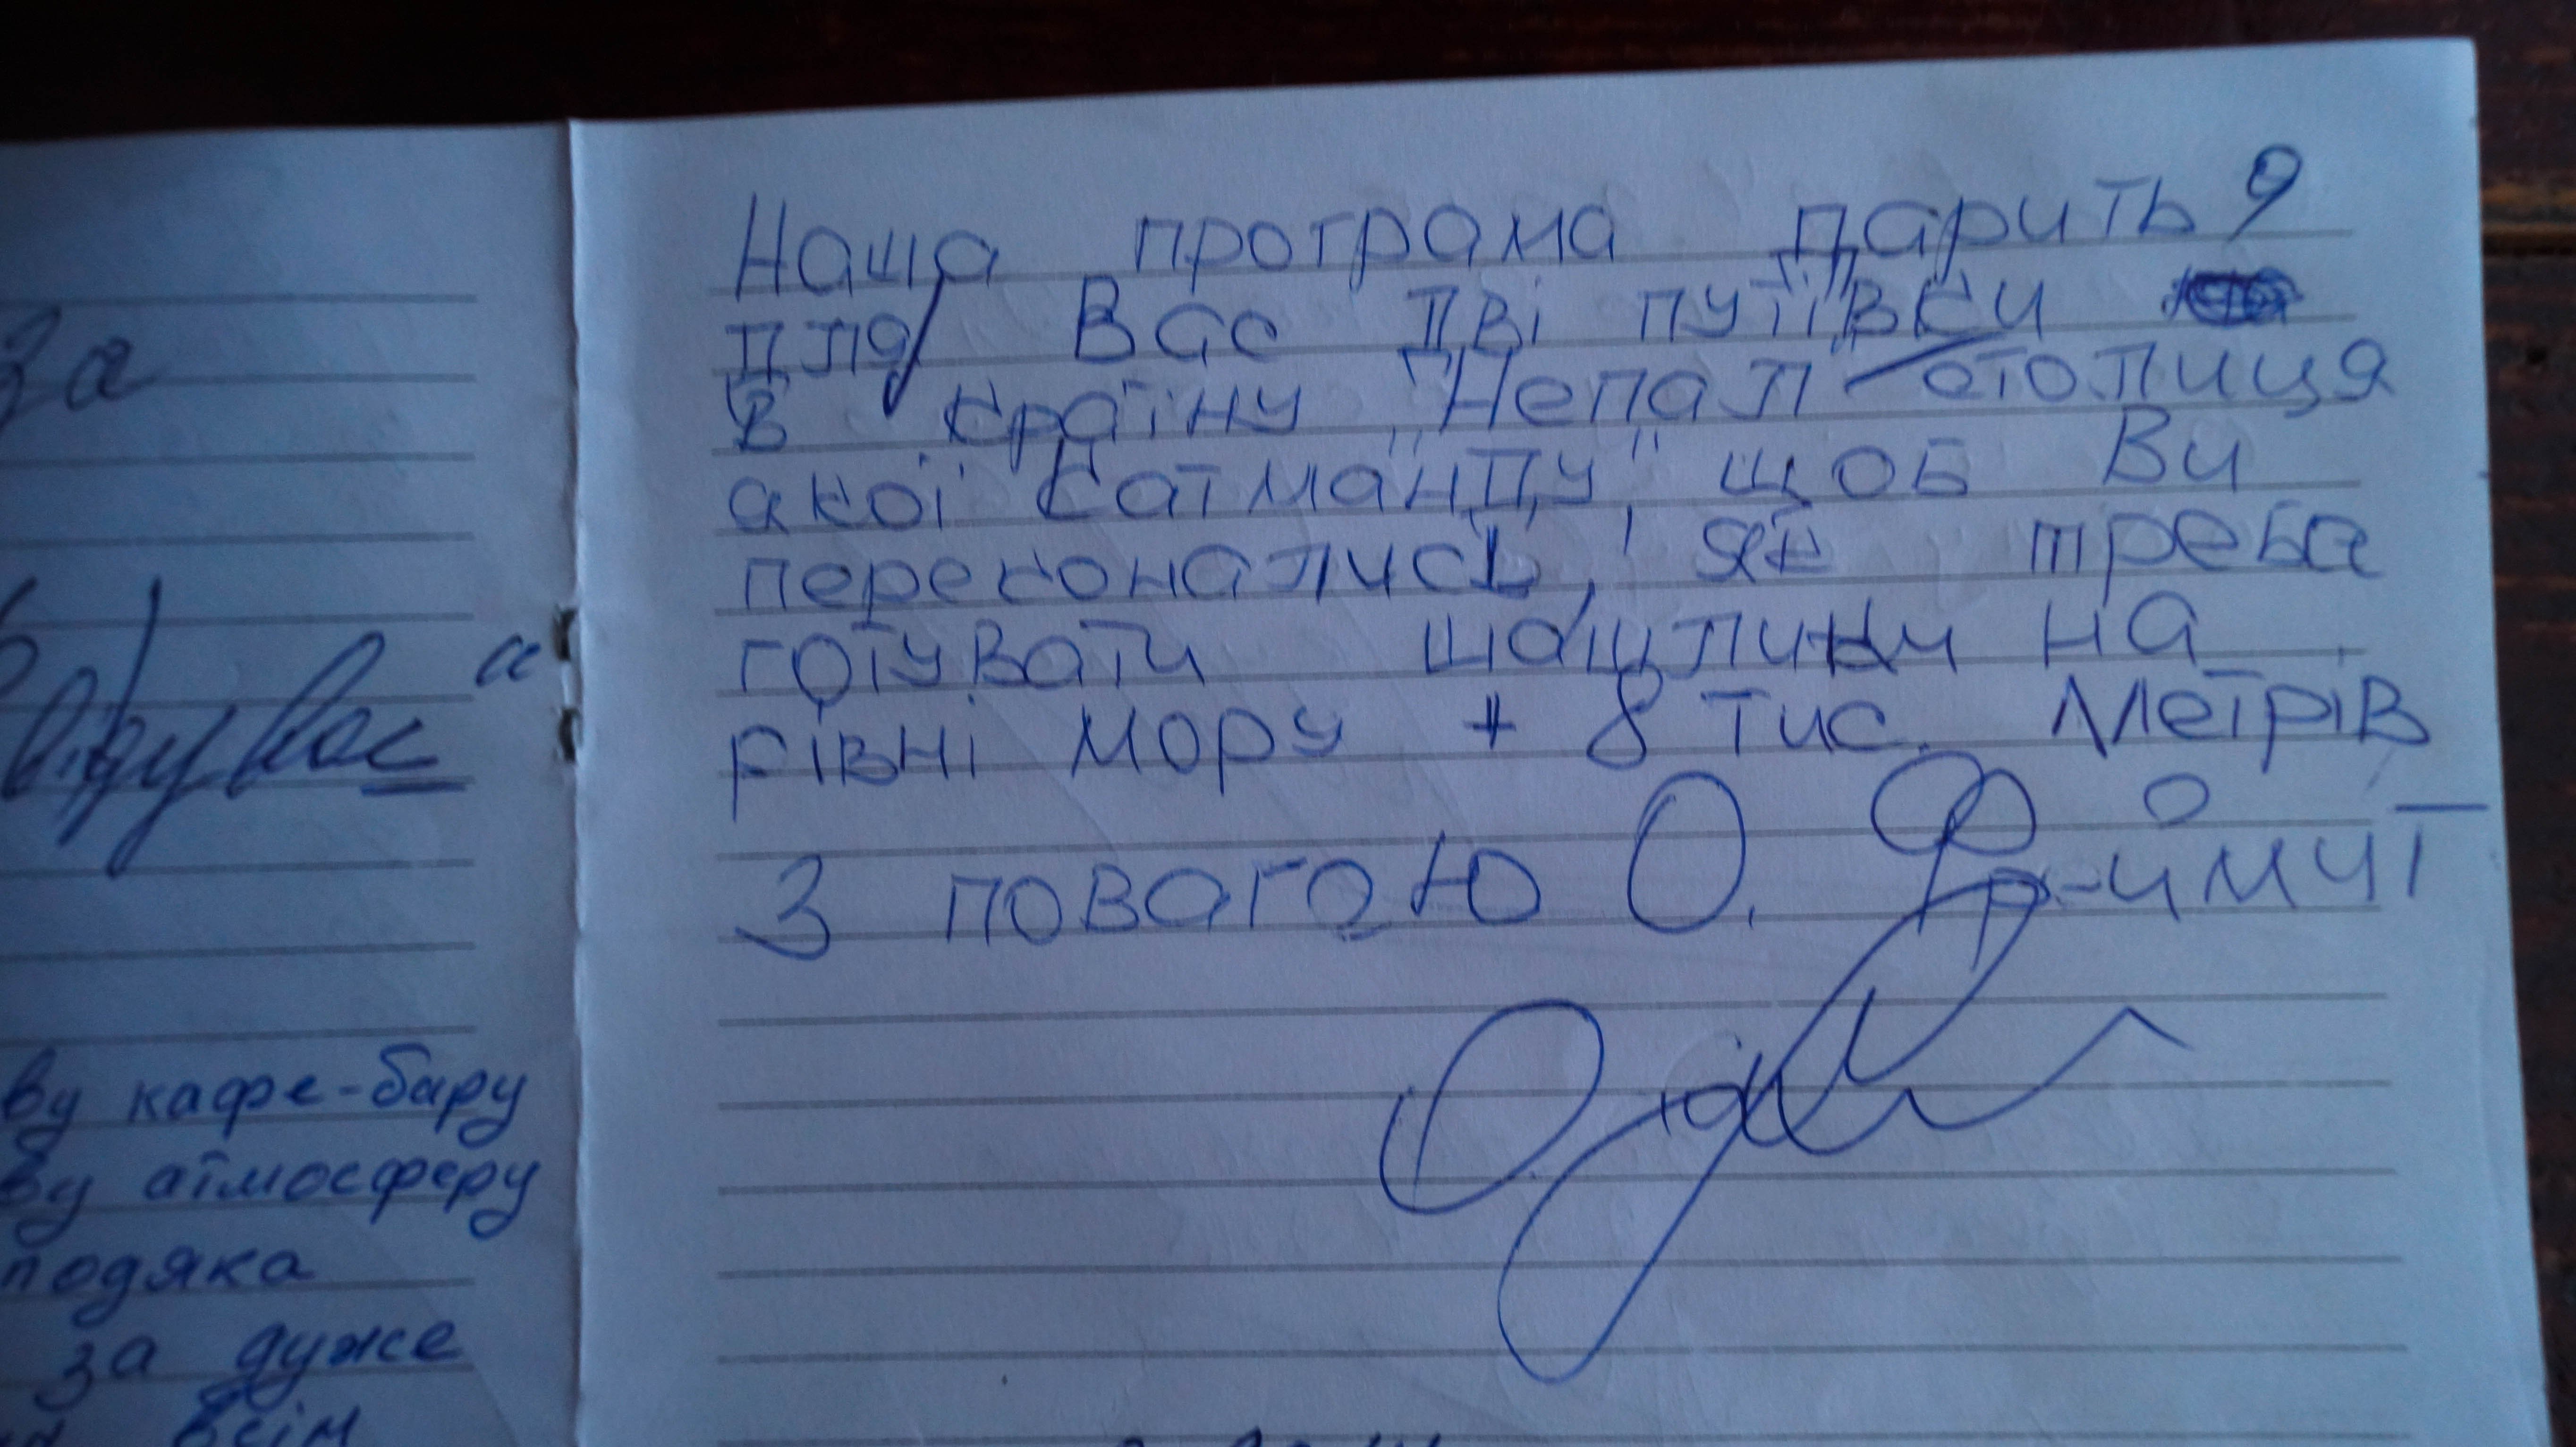 за
відувас
ву кафе-бару
ву атмосферу
подяка
за дуже
всім
Наша програма дарить
для Вас дві путівки
в країну Непал - столиця
якої "Катманду", щоб Ви
переконались, як треба
готувати шашлики на
рівні мору + 8 тис. метрів
З повагою О.